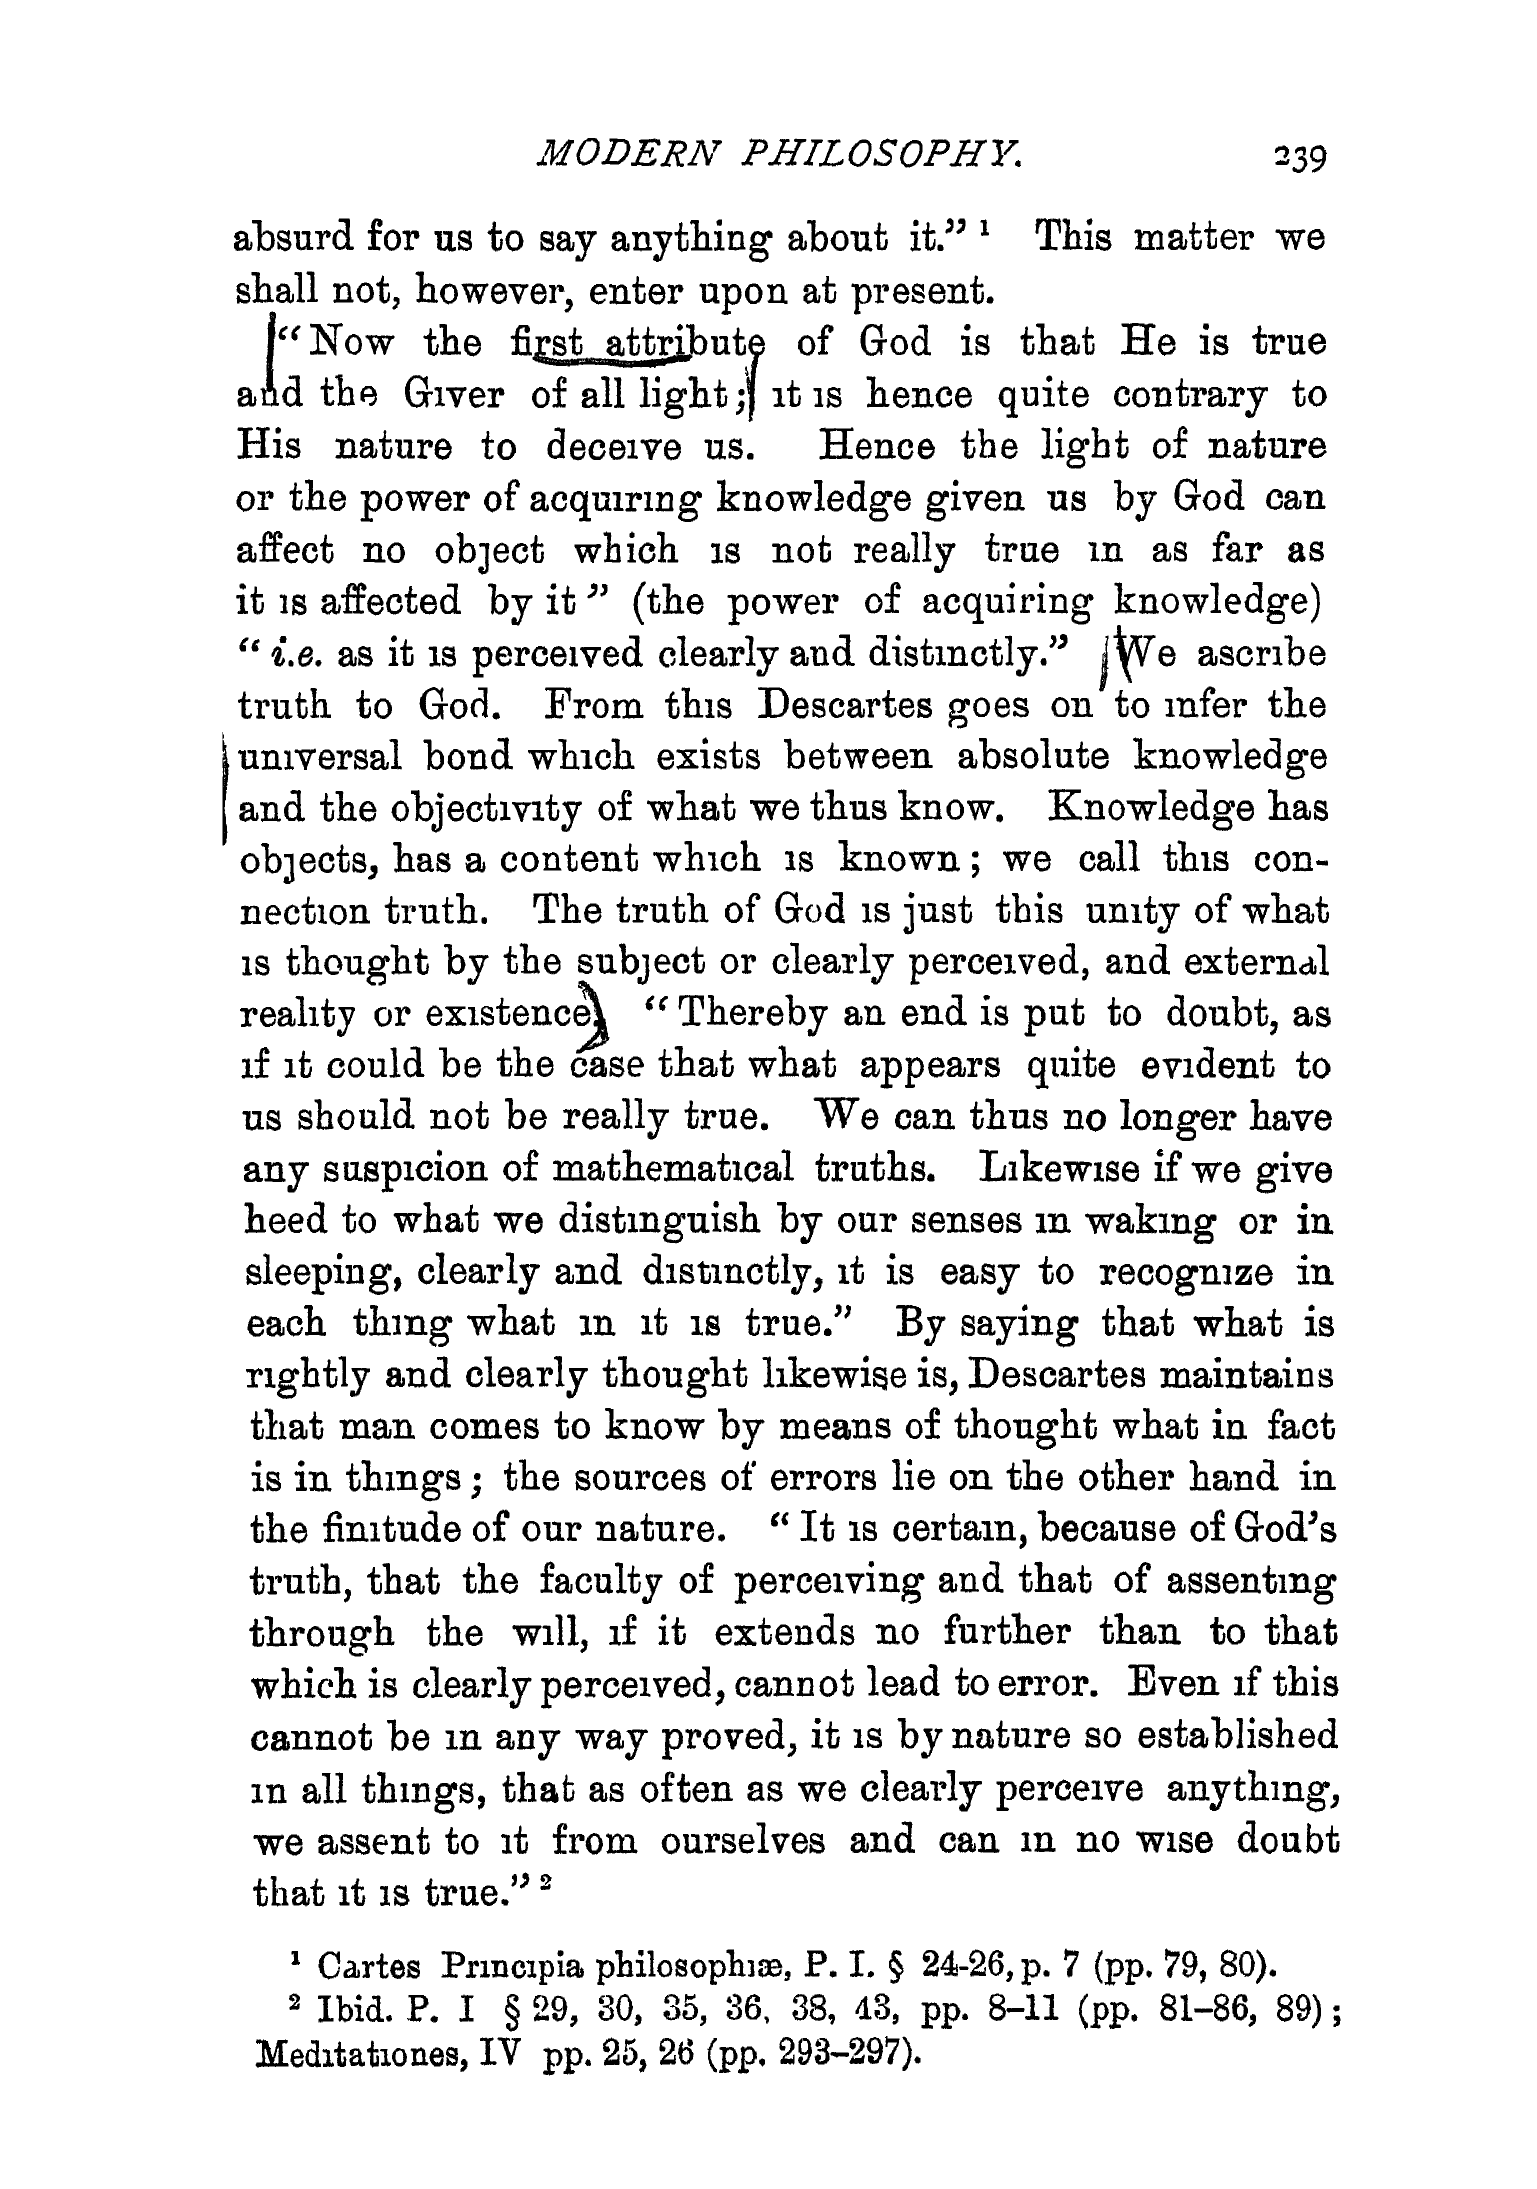 MODERN PHILOSOPHY. 239
absurd for us to say anything about it.” ¹ This matter we
shall not, however, enter upon at present.
“Now the first attribute of God is that He is true
and the Giver of all light; it is hence quite contrary to
His nature to deceive us. Hence the light of nature
or the power of acquiring knowledge given us by God can
affect no object which is not really true in as far as
it is affected by it” (the power of acquiring knowledge)
“i.e. as it is perceived clearly and distinctly.” We ascribe
truth to God. From this Descartes goes on to infer the
universal bond which exists between absolute knowledge
and the objectivity of what we thus know. Knowledge has
objects, has a content which is known; we call this con-
nection truth. The truth of God is just this unity of what
is thought by the subject or clearly perceived, and external
reality or existence. “Thereby an end is put to doubt, as
if it could be the case that what appears quite evident to
us should not be really true. We can thus no longer have
any suspicion of mathematical truths. Likewise if we give
heed to what we distinguish by our senses in waking or in
sleeping, clearly and distinctly, it is easy to recognize in
each thing what in it is true.” By saying that what is
rightly and clearly thought likewise is, Descartes maintains
that man comes to know by means of thought what in fact
is in things; the sources of errors lie on the other hand in
the finitude of our nature. “It is certain, because of God’s
truth, that the faculty of perceiving and that of assenting
through the will, if it extends no further than to that
which is clearly perceived, cannot lead to error. Even if this
cannot be in any way proved, it is by nature so established
in all things, that as often as we clearly perceive anything,
we assent to it from ourselves and can in no wise doubt
that it is true.” ²
¹ Cartes Principia philosophiæ, P. I. § 24-26, p. 7 (pp. 79, 80).
² Ibid. P. I § 29, 30, 35, 36, 38, 43, pp. 8–11 (pp. 81–86, 89);
Meditationes, IV pp. 25, 26 (pp. 293–297).